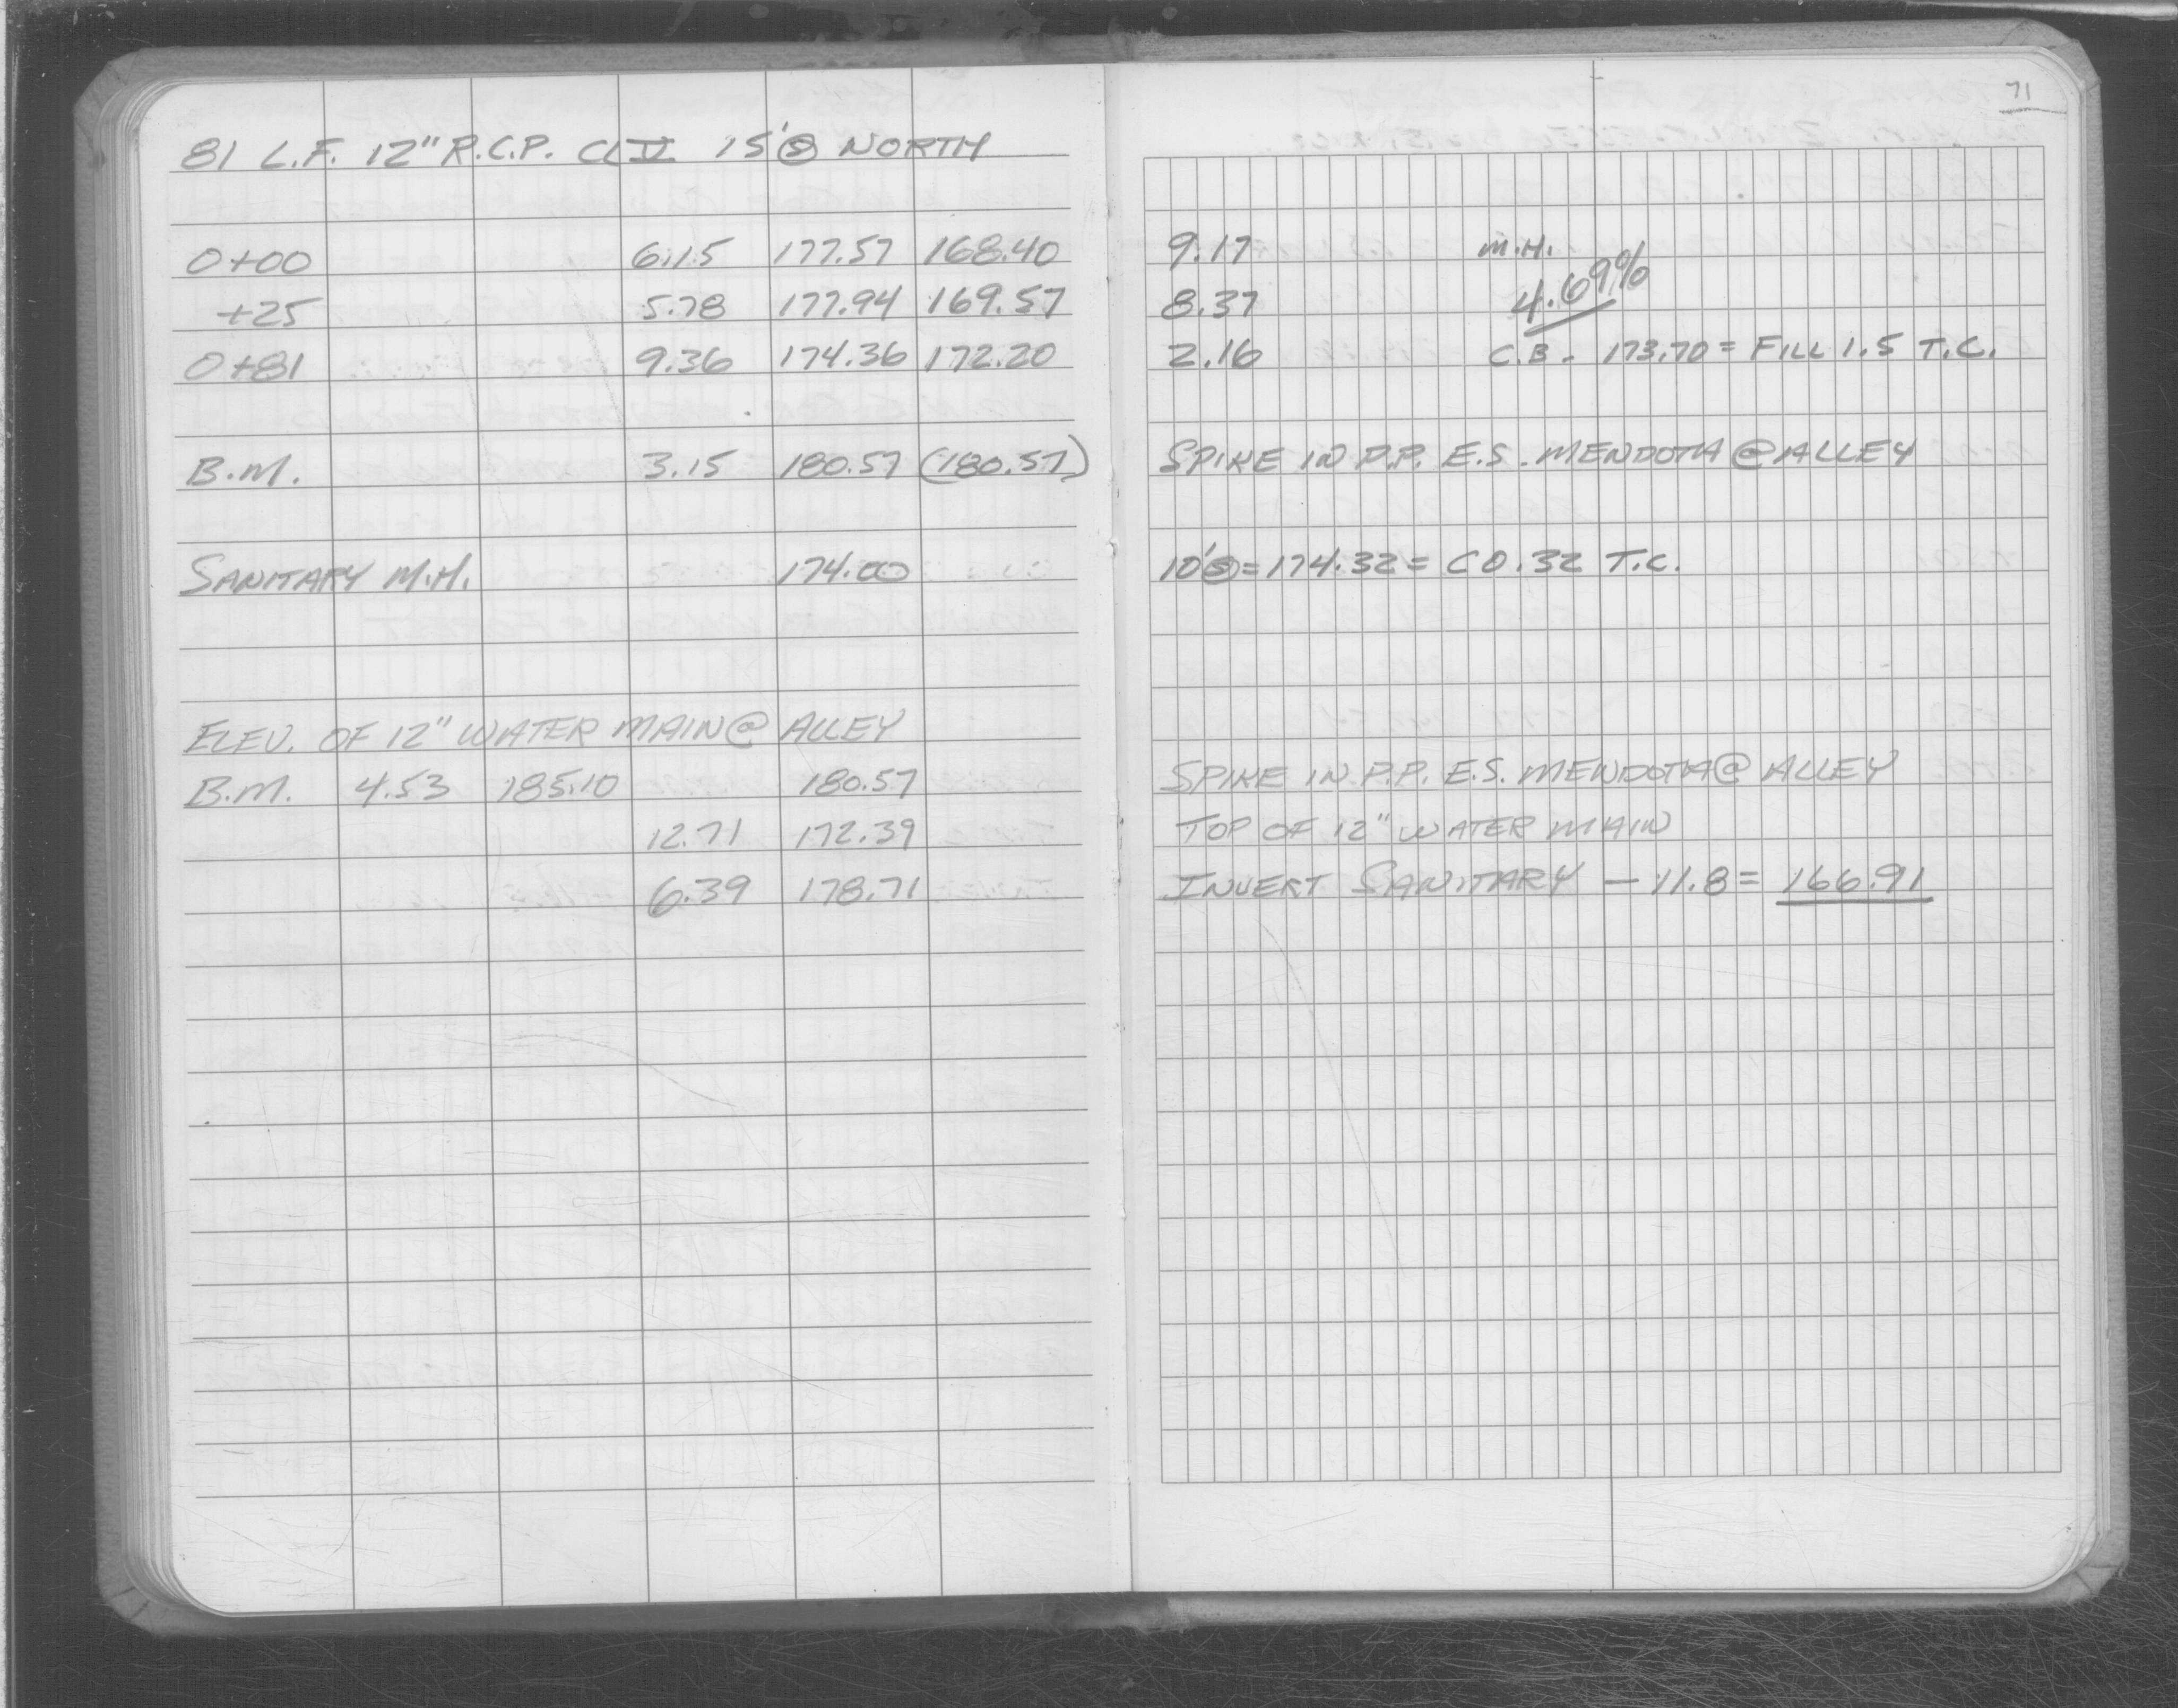 81 L.F. 12" R.C.P. CL IV 15' Ⓢ NORTH
0+00 6.15 177.57 168.40
+25 5.78 177.94 169.57
0+81 9.36 174.36 172.20
B.M. 3.15 180.57 (180.57)
SANITARY M.H. 174.00
ELEV. OF 12" WATER MAIN @ ALLEY
B.M. 4.53 185.10 180.57
12.71 172.39
6.39 178.71
71
9.17 M.H.
8.37 4.69%
2.16 C.B. - 173.70 = FILL 1.5 T.C.
SPIKE IN P.P. E.S. MENDOTA @ ALLEY
10' Ⓢ = 174.32 = C 0.32 T.C.
SPIKE IN P.P. E.S. MENDOTA @ ALLEY
TOP OF 12" WATER MAIN
INVERT SANITARY - 11.8 = 166.91